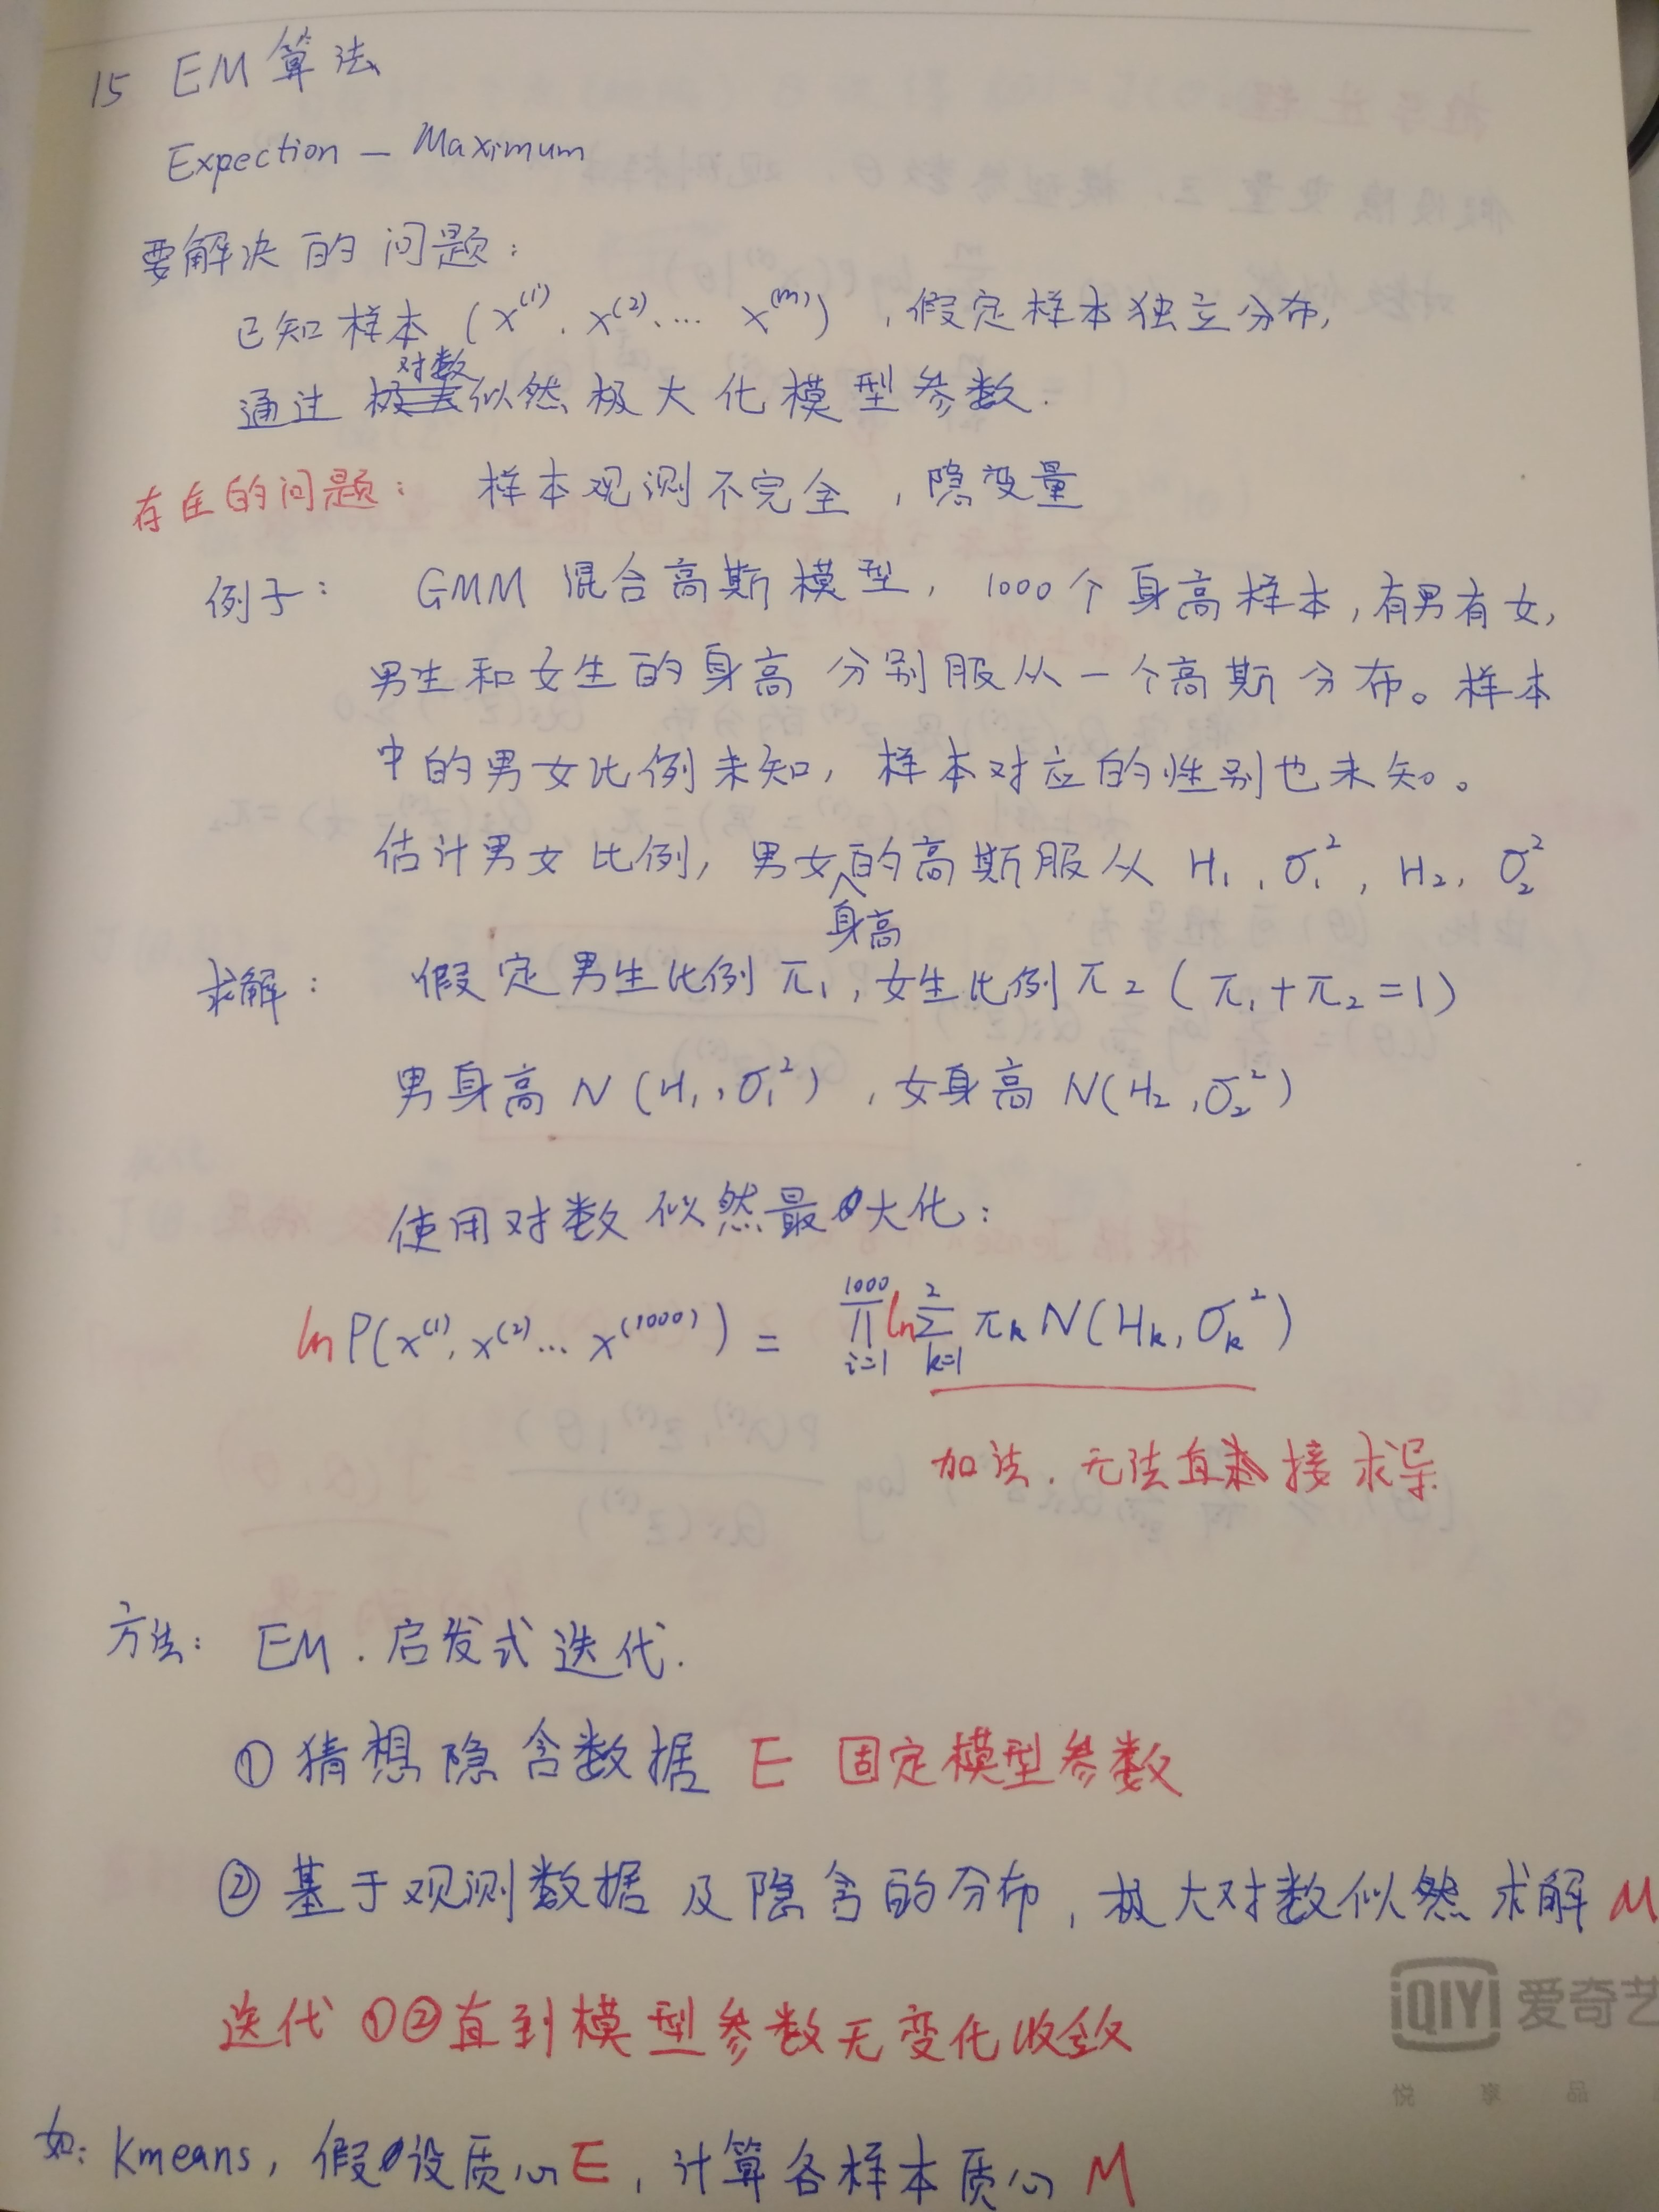 15 EM算法
Expection - Maximum
要解决的问题：
已知样本 (x^(1), x^(2), … x^(m)) ，假定样本独立分布，
通过对数似然极大化模型参数.
存在的问题： 样本观测不完全，隐变量
例子： GMM 混合高斯模型，1000个身高样本，有男有女，
男生和女生的身高分别服从一个高斯分布。样本
中的男女比例未知，样本对应的性别也未知。
估计男女比例，男女身高的高斯服从 H₁, σ₁², H₂, σ₂²
求解： 假定男生比例π₁，女生比例π₂（π₁+π₂=1）
男身高 N(H₁, σ₁²)，女身高 N(H₂, σ₂²)
使用对数似然最大化：
ln P(x^(1), x^(2) … x^(1000)) = ∏_{i=1}^{1000} ln ∑_{k=1}^{2} π_k N(H_k, σ_k²)
加法. 无法直接求导.
方法： EM . 启发式迭代.
① 猜想隐含数据 E 固定模型参数
② 基于观测数据及隐含的分布，极大对数似然求解 M
迭代①②直到模型参数无变化收敛
iQIYI 爱奇艺
悦 享 品
如：Kmeans，假设质心E，计算各样本质心 M